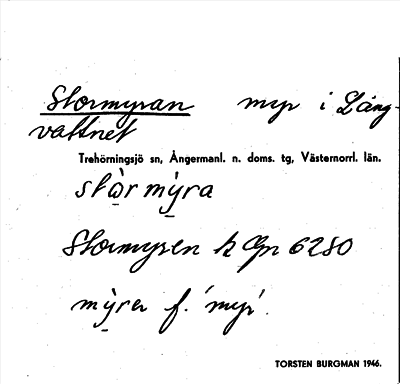 Stormyran myr i Lång-
vattnet
Trehörningsjö sn, Ångermanl. n. doms. tg, Västernorrl. län.
stòr mỳra
Stormyren k Gn 6280
mỳra f. 'myr'.
TORSTEN BURGMAN 1946.